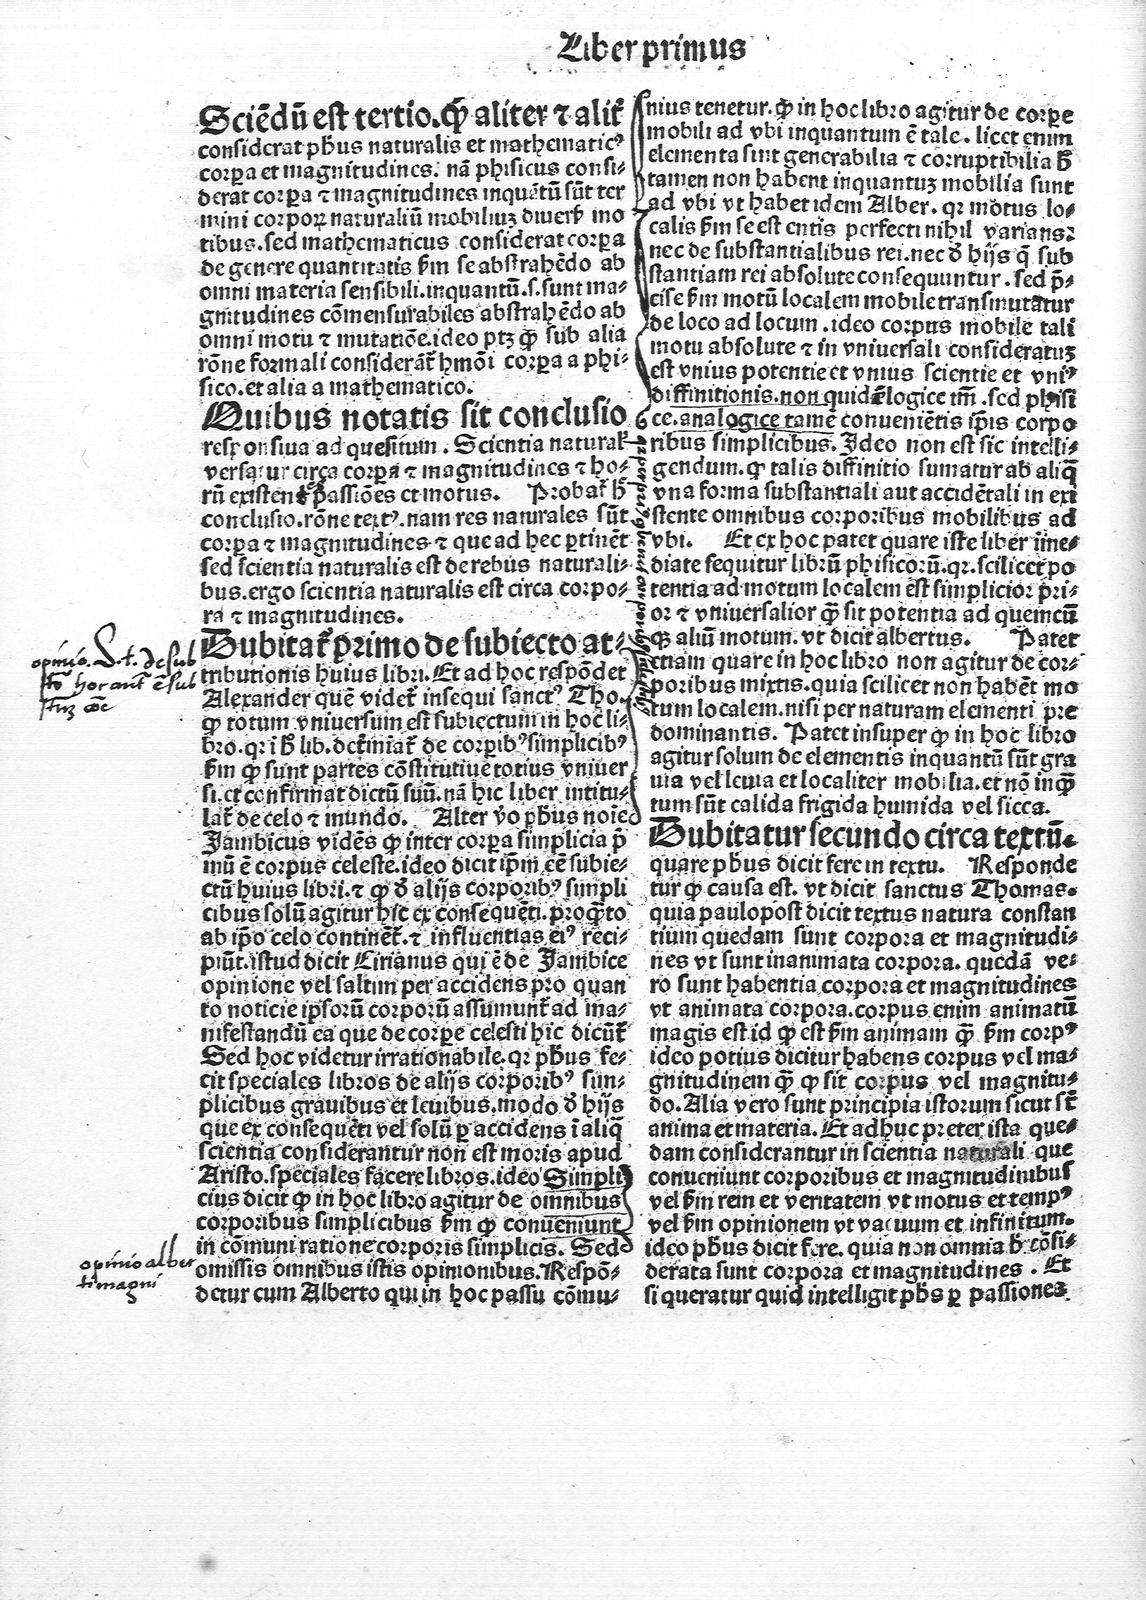 Liber primus
Sciēdū est tertio. ꝙ aliter ⁊ alit᷑
considerat pħus naturalis et mathematicꝰ
corꝑa et magnitudines. nā phisicus consi⸗
derat corꝑa ⁊ magnitudines inquētū sūt ter
mini corpoꝝ naturaliū mobiliuꝫ diuers̄ mo
tibus. sed mathematicus considerat corꝑa
de genere quantitatis ẜm se abstrahēdo ab
omni materia sensibili. inquantū .s. sunt ma⸗
gnitudines cōmensurabiles abstrahēdo ab
omni motu ⁊ mutatiōe. ideo ptꝫ ꝙ sub alia
rōne formali considerāt᷑ hmōi corꝑa a phi⸗
sico. et alia a mathematico.
Quibus notatis sit conclusio
responsiua ad quesitum. Scientia natural̕
versatur circa corꝑa ⁊ magnitudines ⁊ ho⸗
rū existent passiōes et motus. Probat᷑ ħ
conclusio. rōne textꝰ. nam res naturales sūt
corꝑa ⁊ magnitudines ⁊ que ad hec ꝑtinēt
sed scientia naturalis est de rebus naturali⸗
bus. ergo scientia naturalis est circa corpo⸗
ra ⁊ magnitudines.
Dubitat᷑ primo de subiecto at⸗
tributionis huius libri. Et ad hoc respōdet
Alexander quē videt᷑ insequi sanctꝰ Tho.
ꝙ totum vniuersum est subiectum in hoc li⸗
bro. qꝛ ī ħ lib. determiat᷑ de corꝑibꝰ simplicibꝰ
ẜm ꝙ sunt partes cōstitutiue totius vniuer
si. et confirmat dictū suū. nā hic liber intitu⸗
lat᷑ de celo ⁊ mundo. Alter v̄o pħus noīe
Jambicus vidēs ꝙ inter corꝑa simplicia p̄
mū ē corpus celeste. ideo dicit ip̄m eē subie⸗
ctū huius libri. ⁊ ꝙ ð alijs corporibꝰ simpli
cibus solū agitur hic ex consequēti. pro ꝙ̄to
ab ip̄o celo continēt᷑. ⁊ influentias eiꝰ reci⸗
piūt. istud dicit Lirianus qui ē de Jambice
opinione vel saltim per accidens pro quan
to noticie ipsorū corporū assumunt᷑ ad ma⸗
nifestandū ea que de corꝑe celesti hic dicūt᷑
Sed hoc videtur irrationabile. qꝛ pħus fe⸗
cit speciales libros de alijs corporibꝰ sim⸗
plicibus grauibus et leuibus. modo ð hijs
que ex consequēti vel solū ꝑ accidens ī aliq̄
scientia considerantur non est moris apud
Aristo. speciales facere libros. ideo Simpli
cius dicit ꝙ in hoc libro agitur de omnibus
corporibus simplicibus ẜm ꝙ conueniunt
in cōmuni ratione corporis simplicis. Sed
omissis omnibus istis opinionibus. Respō⸗
detur cum Alberto qui in hoc passu cōmu⸗
nius tenetur. ꝙ in hoc libro agitur de corꝑe
mobili ad vbi inquantum ē tale. licet enim
elementa sint generabilia ⁊ corruptibilia ħ
tamen non habent inquantuꝫ mobilia sunt
ad vbi vt habet idem Alber. qꝛ motus lo⸗
calis ẜm se est entis perfecti nihil varians
nec de substantialibus rei. nec ð hijs q̄ sub
stantiam rei absolute consequuntur. sed p̄⸗
cise ẜm motū localem mobile transmutatur
de loco ad locum. ideo corpus mobile tali
motu absolute ⁊ in vniuersali consideratuꝫ
est vnius potentie et vnius scientie et vniꝰ
diffinitionis. non quidē logice im̄. sed phisi
ce. analogice tamē conuenientis ip̄is corpo
ribus simplicibus. Ideo non est sic intelli⸗
gendum. ꝙ talis diffinitio sumatur ab aliq̄
vna forma substantiali aut accidētali in exi
stente omnibus corporibus mobilibus ad
vbi. Et ex hoc patet quare iste liber īme⸗
diate sequitur librū phisicorū. qꝛ. scilicet po
tentia ad motum localem est simplicior pri⸗
or ⁊ vniuersalior ꝙ̄ sit potentia ad quemcū
qꝫ aliū motum. vt dicit albertus. Patet
etiam quare in hoc libro non agitur de cor⸗
poribus mixtis. quia scilicet non habēt mo
tum localem. nisi per naturam elementi pre
dominantis. Patet insuper ꝙ in hoc libro
agitur solum de elementis inquantū sūt gra
uia vel leuia et localiter mobilia. et nō inꝙ̄
tum sūt calida frigida humida vel sicca.
Dubitatur secundo circa textū.
quare pħus dicit fere in textu. Responde
tur ꝙ causa est. vt dicit sanctus Thomas.
quia paulopost dicit textus natura constan
tium quedam sunt corpora et magnitudi⸗
nes vt sunt inanimata corpora. quedā ve⸗
ro sunt habentia corpora et magnitudines
vt animata corpora. corpus enim animatū
magis est id ꝙ est ẜm animam ꝙ̄ ẜm corpꝰ
ideo potius dicitur habens corpus vel ma⸗
gnitudinem ꝙ̄ ꝙ sit corpus vel magnitu⸗
do. Alia vero sunt principia istorum sicut st̄
anima et materia. Et adhuc preter ista que⸗
dam considerantur in scientia naturali que
conueniunt corporibus et magnitudinibus
vel ẜm rem et veritatem vt motus et tempꝰ
vel ẜm opinionem vt vacuum et infinitum.
ideo pħus dicit fere. quia non omnia ħ cōsi⸗
derata sunt corpora et magnitudines. Et
si queratur quid intelligit pħs ꝑ passiones
opinio S. t. de sub
opinio alber
ti magni